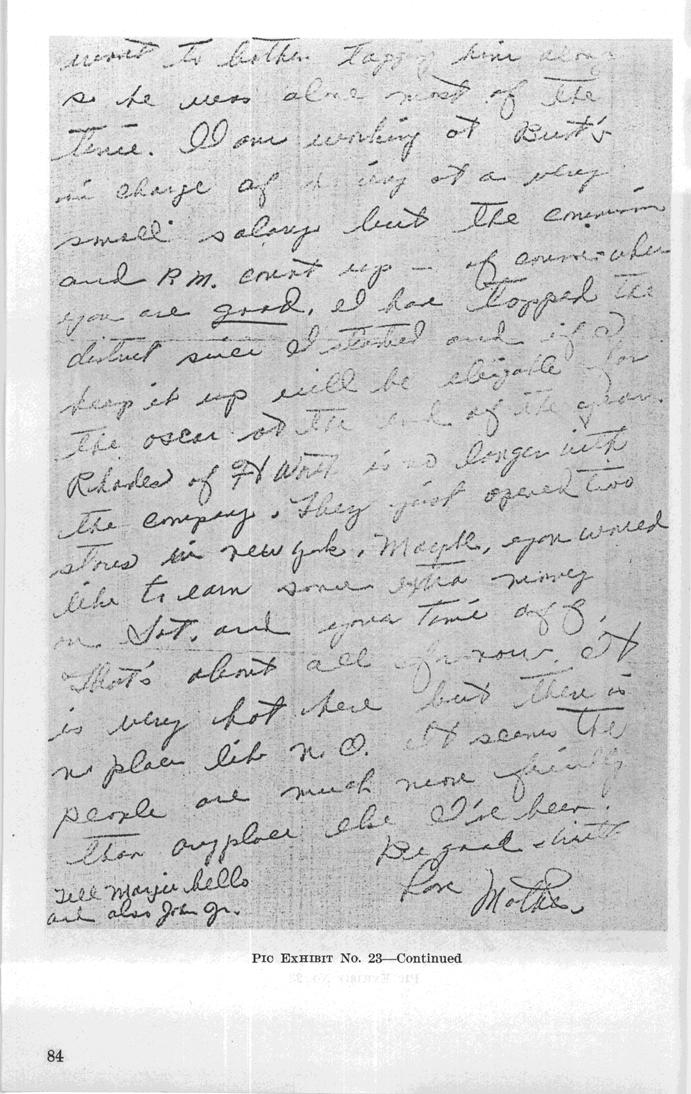 want to bother tagging him along
so he was alone most of the
time. I am working at Burt's
in charge of at a very
small salary but the commission
and P.M. count up — of course when
you are good. I have topped the
district since I started and if I
keep it up will be eligable for
the oscar at the end of the year.
Rhodes of Ft Worth is no longer with
the company. They just opened two
stores in new york. Maybe, you would
like to earn some extra money
on Sat. and your time off.
That's about all for now. It
is very hot here but there is
no place like N. O. It seems the
people are much more friendly
than anyplace else I've been.
Be good &
Love Mother.
Tell Margie hello
and also John Jr.
PIC EXHIBIT NO. 23—Continued
84